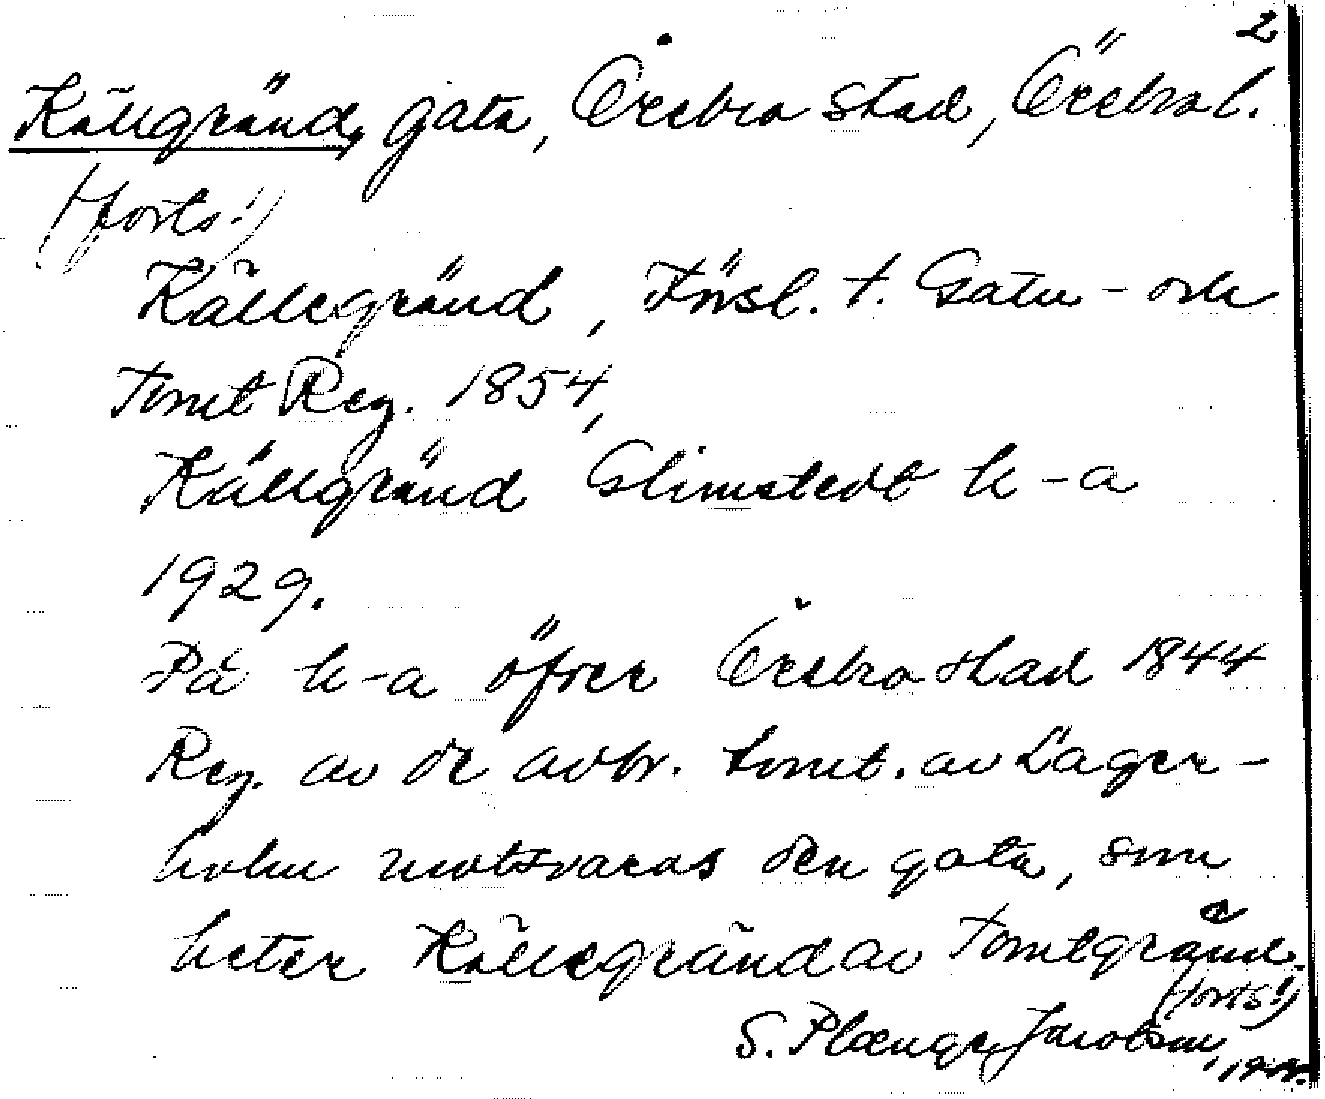 2
Källgränd, gata, Örebro stad, Örebro l.
(forts!)
Källegränd, Försl. t. Gatu- och
Tomt Reg. 1854,
Källgränd Glimstedt k-a
1929.
På k-a öfver Örebro stad 1844
Reg. av de avbr. tomt. av Lager-
holm motsvaras den gata, som
heter Källegränd av Tomtgränd.
(forts!)
S. Plænge Jacobson,